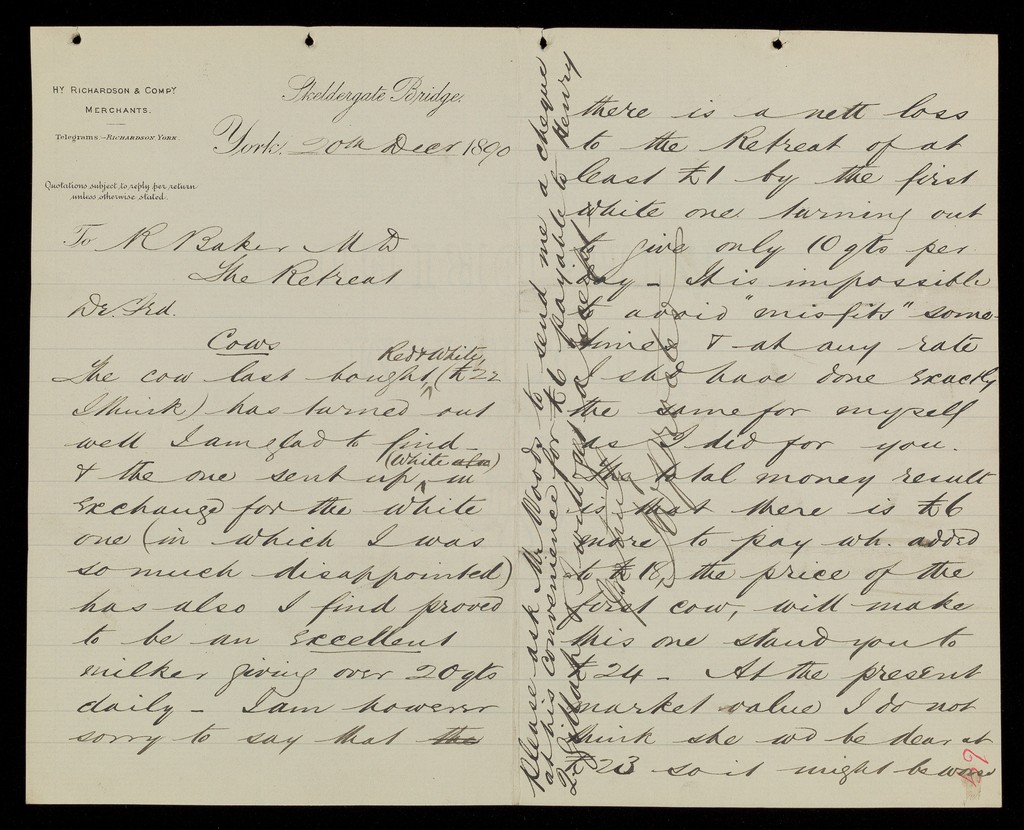 Hy RICHARDSON & COMPy
MERCHANTS.
Telegrams:—RICHARDSON YORK.
Quotations subject to reply per return
unless otherwise stated.
Skeldergate Bridge,
York, 20th Decr 1890
To R Baker M D
The Retreat
Dr. Frd.
Cows
Red & White
The cow last bought, (£22
I think) has turned out
well I am glad to find -
(White also)
& the one sent up in
exchange for the white
one (in which I was
so much disappointed)
has also I find proved
to be an excellent
milker giving over 20 qts
daily - I am however
sorry to say that the
there is a nett loss
to the Retreat of at
least £1 by the first
white one turning out
to give only 10 qts per
day - It is impossible
to avoid "misfits" some-
times & at any rate
I shd have done exactly
the same for myself
as I did for you.
The total money result
is that there is £6
more to pay wh. added
to £18, the price of the
first cow, will make
this one stand you to
£24 - At the present
market value I do not
think she wd be dear at
£23 so it might be worse
Please ask Mr Woods to send me a cheque
at his convenience for £6 payable to Henry
59